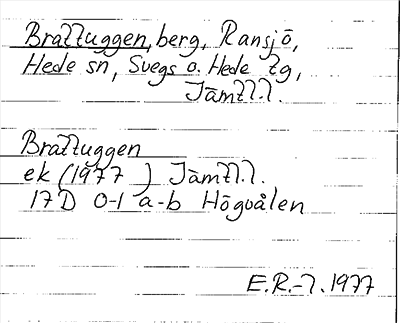 Brattuggen, berg, Ransjö,
Hede sn, Svegs o. Hede tg,
Jämtl.l.
Brattuggen
ek (1977 ) Jämtl.l.
17D 0-1 a-b Högvålen
E.R-l. 1977